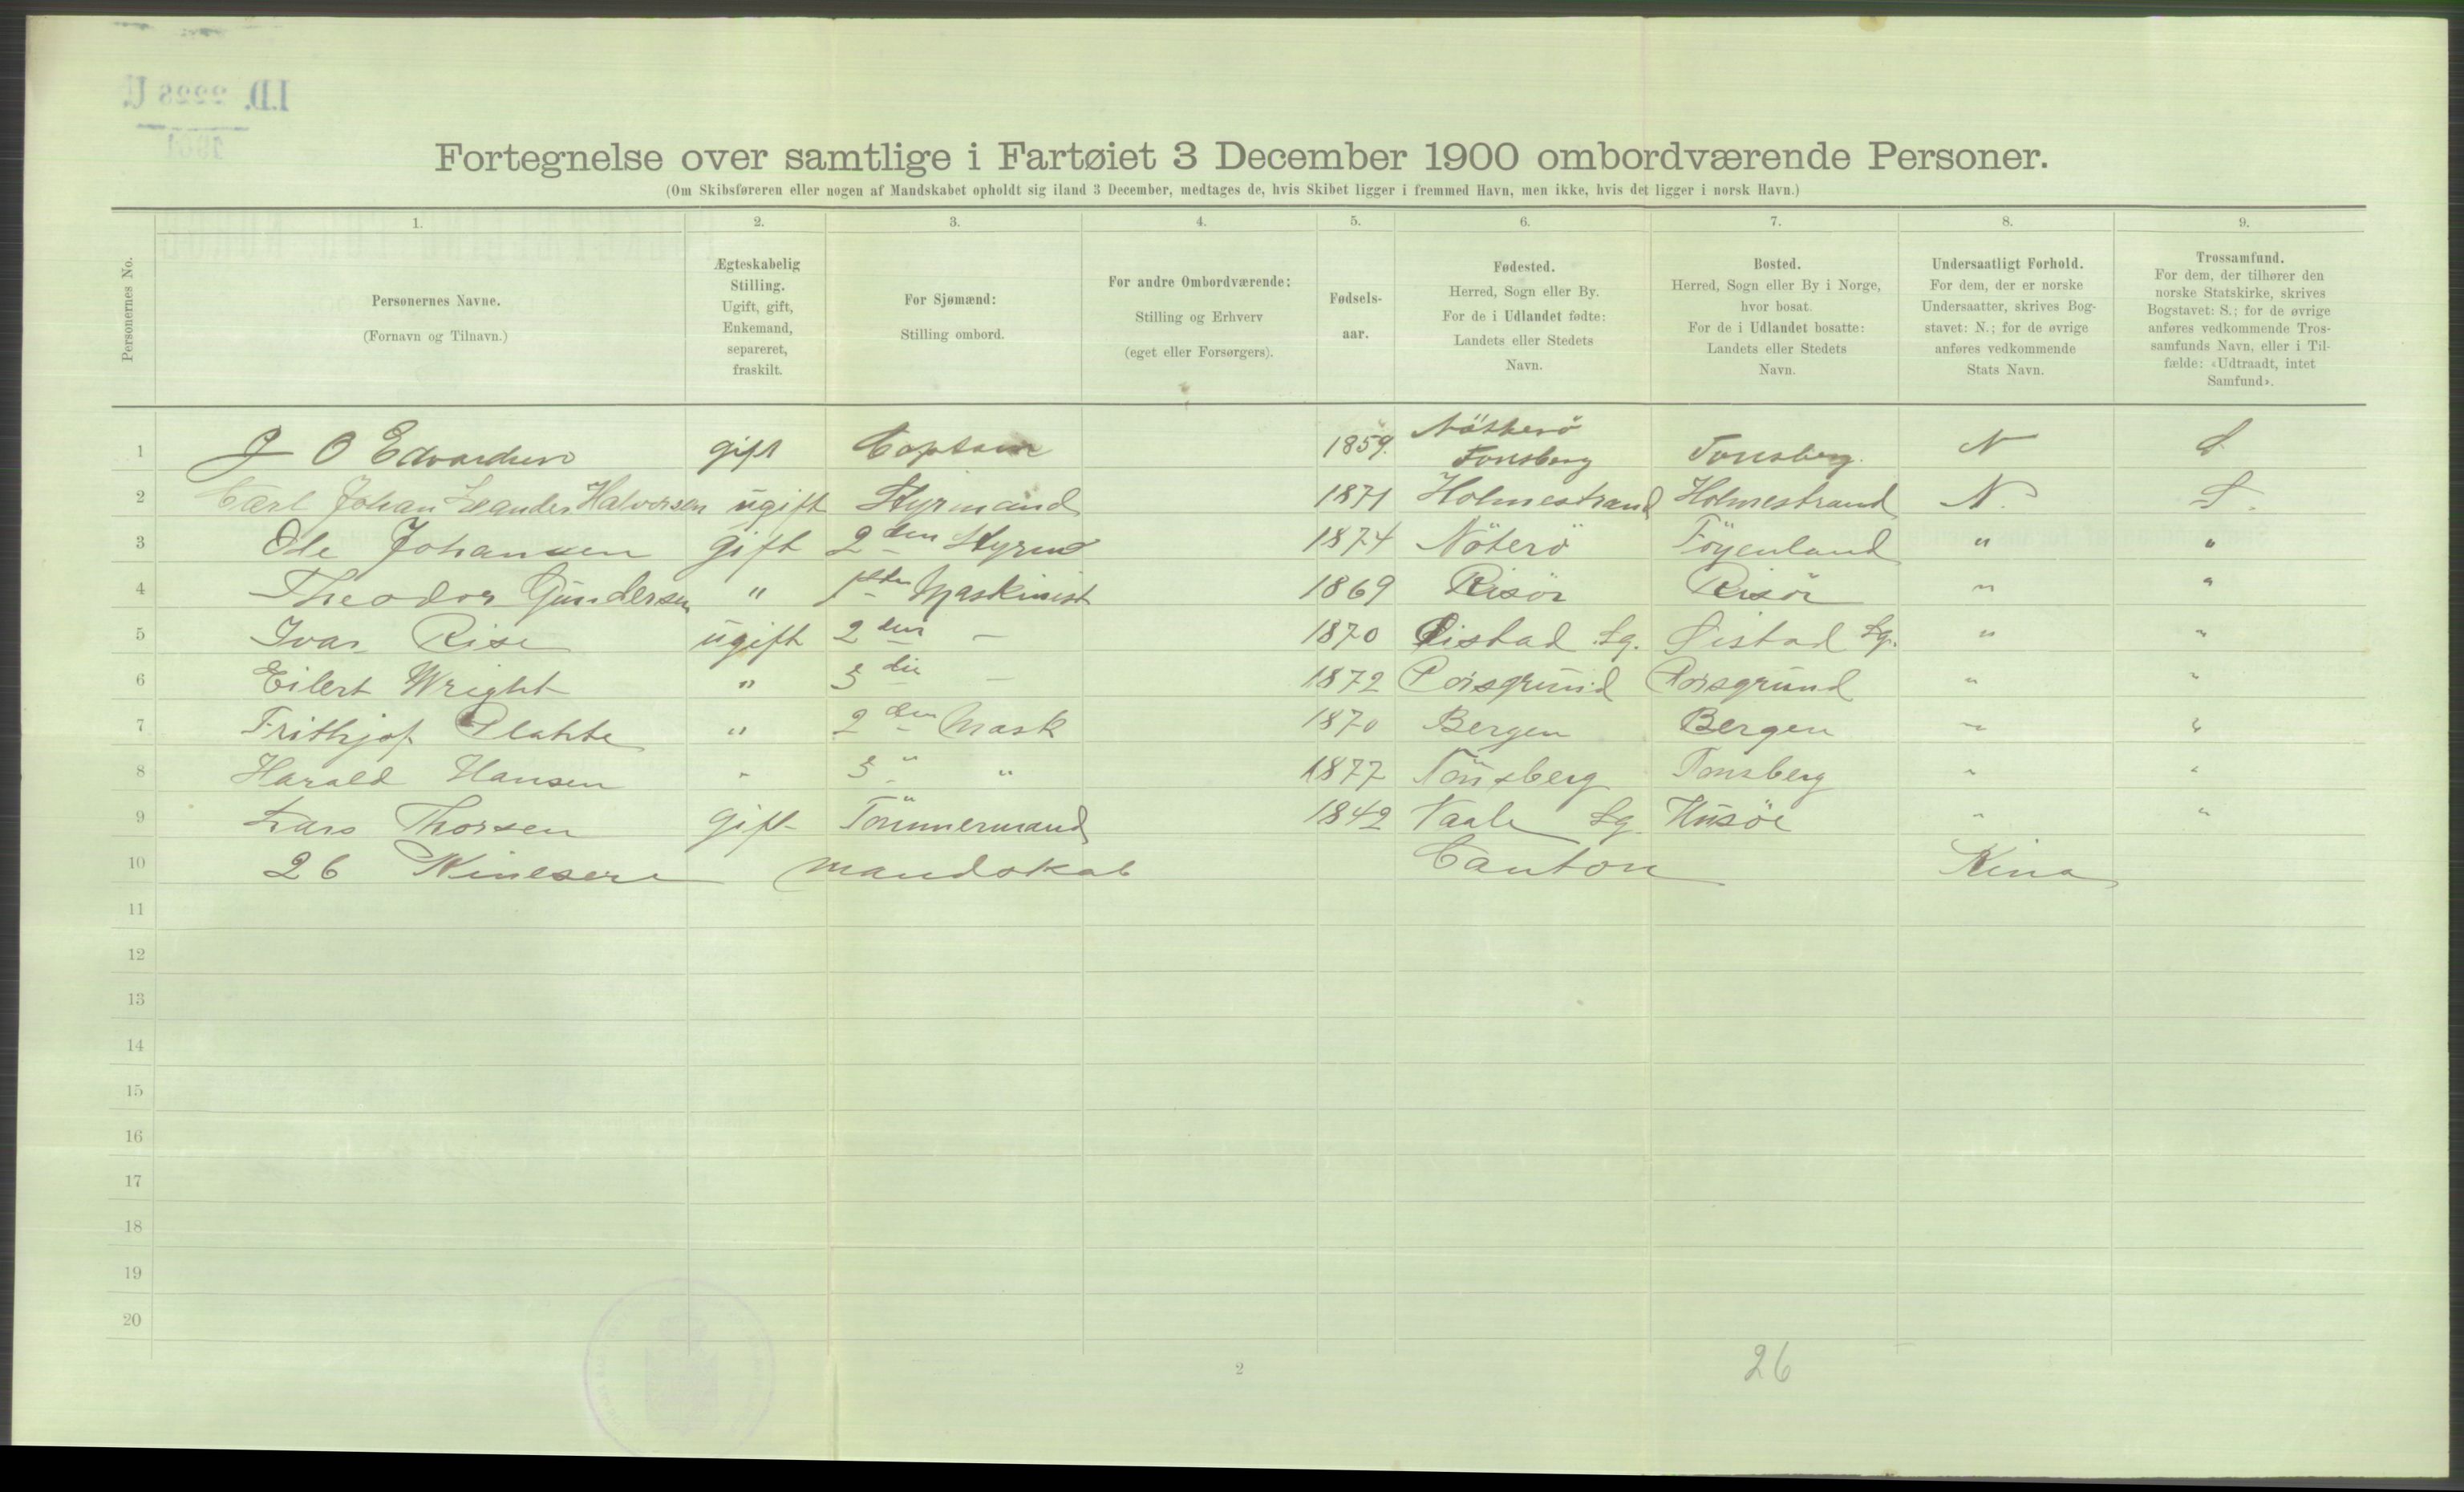 Fortegnelse over samtlige i Fartøiet 3 December 1900 ombordværende Personer.
(Om Skibsføreren eller nogen af Mandskabet opholdt sig iland 3 December, medtages de, hvis Skibet ligger i fremmed Havn, men ikke, hvis det ligger i norsk Havn.)
Personernes No.
1. 2. 3. 4. 5. 6. 7. 8. 9.
Personernes Navne.
(Fornavn og Tilnavn.)
Ægteskabelig
Stilling.
Ugift, gift,
Enkemand,
separeret,
fraskilt.
For Sjømænd:
Stilling ombord.
For andre Ombordværende:
Stilling og Erhverv
(eget eller Forsørgers).
Fødsels-
aar.
Fødested.
Herred, Sogn eller By.
For de i Udlandet fødte:
Landets eller Stedets
Navn.
Bosted.
Herred, Sogn eller By i Norge,
hvor bosat.
For de i Udlandet bosatte:
Landets eller Stedets
Navn.
Undersaatligt Forhold.
For dem, der er norske
Undersaatter, skrives Bog-
stavet: N.; for de øvrige
anføres vedkommende
Stats Navn.
Trossamfund.
For dem, der tilhører den
norske Statskirke, skrives
Bogstavet: S.; for de øvrige
anføres vedkommende Tros-
samfunds Navn, eller i Til-
fælde: «Udtraadt, intet
Samfund».
Nötterö
1 J O Edvardsen gift Captain 1859. Tonsberg Tonsberg. N S
2 Carl Johan Leander Halvorsen ugift Styrmand 1871 Holmestrand Holmestrand N. S.
3 Ole Johansen gift 2den Styrmd 1874 Nöterö Föyenland " "
4 Theodor Gundersen " 1ste Maskinist 1869 Risör Risör " "
5 Ivar Rise ugift 2den — 1870 Øistad Sg. Øistad Sg. " "
6 Eilert Wright " 3die — 1872 Porsgrund Porsgrund " "
7 Frithjof Plahte " 2den Mask 1870 Bergen Bergen " "
8 Harald Hansen " 3 " " 1877 Tönsberg Tonsberg " "
9 Lars Thorsen gift Tömmermand 1842 Vaale Sg. Husöe " "
10 26 Kinesere mandskab Canton Kina
11
12
13
14
15
16
17
18
19
20
2
26